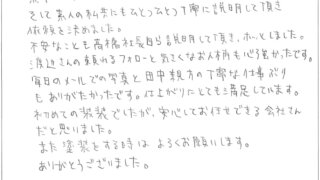 そして素人の私共にもひとつひとつ丁寧に説明して頂き
依頼を決めました。
不安なことも高橋社長自ら説明して頂き、ホッとしました。
渡辺さんの頼れるフォローと気さくなお人柄も心強かったです。
毎日のメールでの写真と田中親方の丁寧な仕事ぶり
もありがたかったです。仕上がりにとても満足しています。
初めての塗装でしたが、安心してお任せできる会社さん
だと思いました。
また塗装をする時は よろしくお願いします。
ありがとうございました。